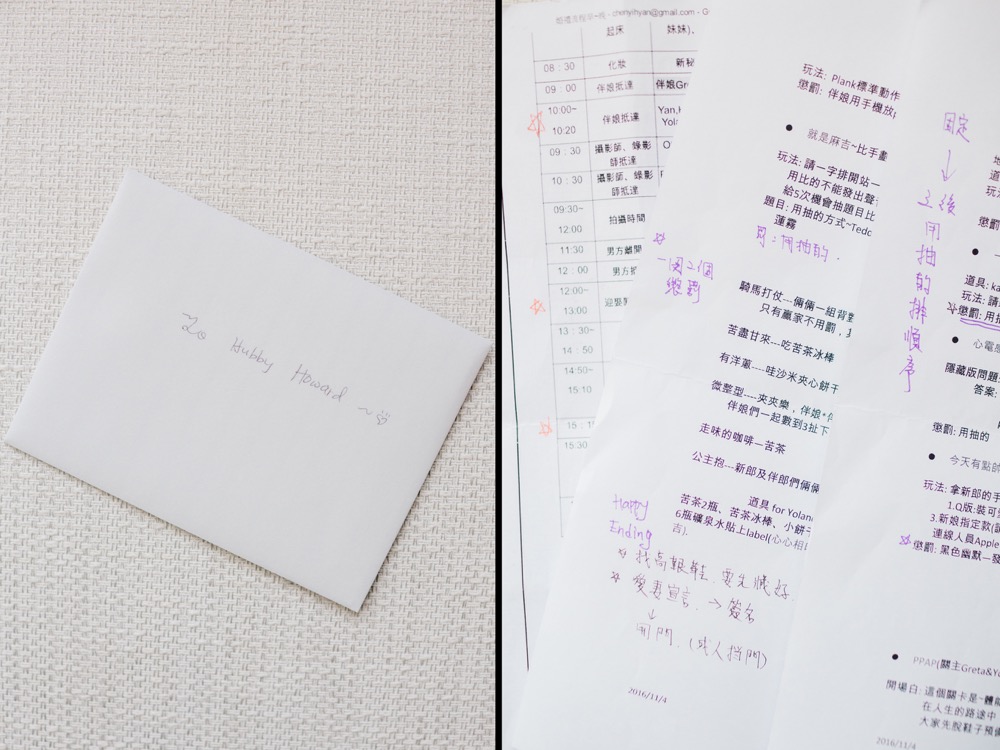 To Hubby Howard ~
婚禮流程單~晚 - chenyihyan@gmail.com - G
起床 妹妹)、
08：30 化妝 新秘
09：00 伴娘抵達 伴娘Gre
10:00~ 10:20 伴娘抵達 Yan,K Yola
09：30 攝影師、錄影師抵達
10：30 攝影師、錄影師抵達
09:30~ 12:00 拍攝時間
11:30 男方離開
12：00 男方抵
12:00~ 13:00 迎娶
13：30~ 14：50
14:50~ 15:10
15:30
玩法: Plank標準動作
懲罰: 伴娘用手機放
● 就是麻吉~比手畫
玩法: 請一字排開站一
用比的不能發出聲
給5次機會抽題目比
題目: 用抽的方式~Tedd
蓮霧
可：用抽的.
一関2個
懲罰
騎馬打仗---倆倆一組背對
只有贏家不用罰，
苦盡甘來---吃苦茶冰棒
有洋蔥----哇沙米夾心餅干
微整型----夾夾樂，伴娘
伴娘們一起數到3扯下
走味的咖啡—苦茶
公主抱---新郎及伴郎們倆倆
道具 for Yolan
苦茶2瓶、苦茶冰棒、小餅干
6瓶礦泉水貼上label(心心相
吉).
Happy
Ending
找高跟鞋.要先藏好.
愛妻宣言. → 簽名
↓
開門. (成人擋門)
2016/11/4
固定
↓
之後用抽的排順序
道
玩法
懲罰
道具: ka
玩法: 請
懲罰: 用抽
● 心電感
隱藏版問題
答案:
懲罰: 用抽的
● 今天有點帥
玩法: 拿新郎的手
1.Q版:裝可愛
3.新娘指定款(
連線人員Apple
懲罰: 黑色幽默—發
● PPAP(關主Greta&Yo
開場白: 這個關卡是~體能
在人生的路途中
大家先脫鞋子預備
2016/11/4